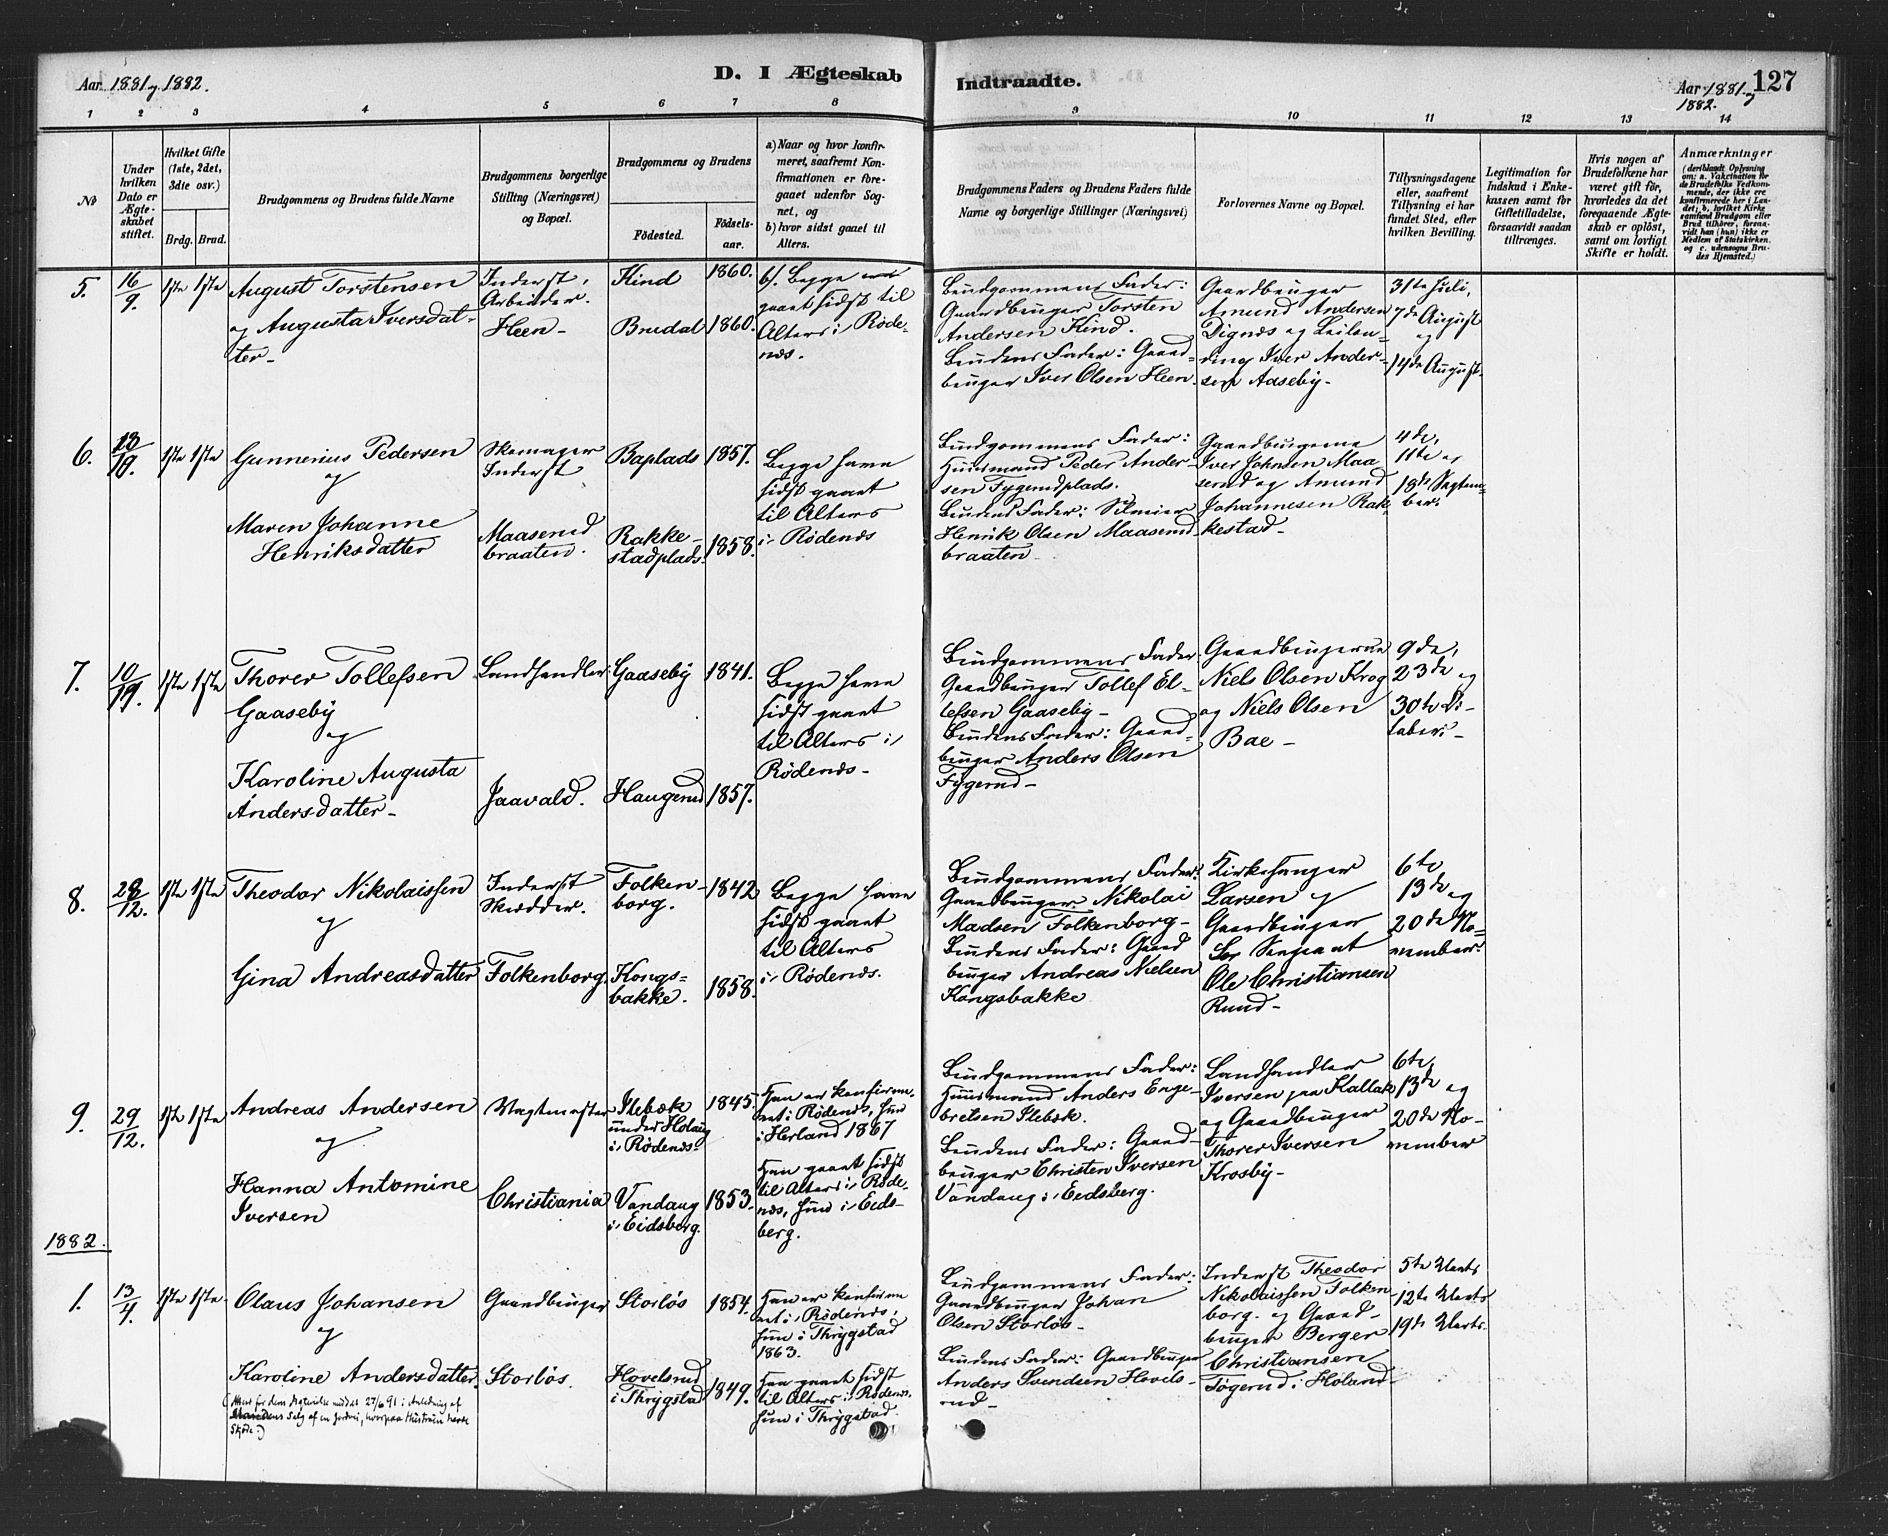 Aar 1881 og 1882.
D. I Ægteskab
Indtraadte.
Aar 1881 og 1882.
127
1 2 3 4 5 6 7 8 9 10 11 12 13 14
No
Under hvilken Dato er Ægteskabet stiftet.
Hvilket Gifte (1ste, 2det, 3dte osv.)
Brdg. Brud.
Brudgommens og Brudens fulde Navne
Brudgommens borgerlige Stilling (Næringsvei) og Bopæl.
Brudgommens og Brudens
Fødested.
Fødsels-aar.
a) Naar og hvor konfirmeret, saafremt Konfirmationen er foregaaet udenfor Sognet, og
b) hvor sidst gaaet til Alters.
Brudgommens Faders og Brudens Faders fulde Navne og borgerlige Stillinger (Næringsvei)
Forlovernes Navne og Bopæl.
Tillysningsdagene eller, saafremt Tillysning ei har fundet Sted, efter hvilken Bevilling.
Legitimation for Indskud i Enkekassen samt for Giftetilladelse, forsaavidt saadan tiltrænges.
Hvis nogen af Brudefolkene har været gift før, hvorledes da det foregaaende Ægteskab er opløst, samt om lovligt Skifte er holdt.
Anmærkninger
(deriblandt Oplysning om: a. Vakcination for de Brudefolks Vedkommende, der ikke ere konfirmerede her i Landet; b. hvilket Kirkesamfund Brudgom eller Brud tilhører, forsaavidt han (hun) ikke er Medlem af Statskirken, og c. udensogns Brudes Hjemsted.)
5. 16/9. 1ste 1ste
August Torstensen
og Augusta Iversdat-
ter-
Inderst,
Arbeider.
Heen-
Kind 1860.
Brudal 1860.
b). Begge
gaaet sidst til
Alters i Røde-
næs.
Brudgommens Fader:
Gaardbruger Torsten
Andersen Kind.
Brudens Fader: Gaard-
bruger Iver Olsen Heen.
Gaardbruger
Amund Andersen
Dignæs og Leilen-
ding Iver Ander-
sen Aaseby-
31te Juli,
7de August
og
14de August.
6. 1ste 1ste
Gunnerius Pedersen
og
Maren Johanne
Henriksdatter
Skomager
Inderst
Maaserud
braaten.
Baplads 1857.
Rakke-
stadplads. 1858.
Begge have
sidst gaaet
til Alters
i Rødenæs
Brudgommens Fader:
Huusmand Peder Ander-
sen Fygerudplads.
Brudens Fader: Selveier
Henrik Olsen Maaserud
braaten-
Gaardbrugerne
Iver Johnsen Maa
serud og Amund
Johannesen Rak-
kestad-
4de,
11te og
18de Septem-
ber.
7. 1ste 1ste
Thorer Tollefsen
Gaaseby
og
Karoline Augusta
Andersdatter-
Landhandler
Jaavald.
Gaaseby 1841.
Haugerud 1857.
Begge have
sidst gaaet
til Alters i
Rødenæs-
Brudgommens Fader
Gaardbruger Tollef El-
lefsen Gaaseby-
Brudens Fader: Gaard-
bruger Anders Olsen
Fygerud-
Gaardbrugerne
Niels Olsen Krog
og Niels Olsen
Bae-
9de,
23de og
30te Ok-
tober.-
8. 28/12. 1ste 1ste
Theodor Nikolaissen
og
Gina Andreasdatter
Inderst
Skrædder.
Folkenborg.
Folken-
borg. 1842
Kongs-
bakke. 1858.
Begge have
sidst gaaet
til Alters
i Rødenæs.
Brudgommens Fader:
Gaardbruger Nikolai
Madsen Folkenborg-
Brudens Fader: Gaard
bruger Andreas Nielsen
Kongsbakke
Kirkesanger
Larsen og
Gaardbruger
Sergeant
Ole Christiansen
Ruud-
6te
13de og
20de No-
vember.
9. 29/12. 1ste 1ste
Andreas Andersen
og
Hanna Antomine
Iversen
Vagtmester
Christiania
Ilebæk 1845.
under Holaug
i Rødenæs
Vandaug 1853.
i Eidsberg.
Han er konfirme-
ret i Rødenæs, hun
i Herland 1867
Han gaaet sidst
til Alters i Røde-
næs, hun i Eids-
berg.
Brudgommens Fader:
Huusmand Anders Enge-
bretsen Ilebæk.
Brudens Fader: Gaard-
bruger Christen Iversen
Vandaug i Eedsberg.
Landhandler
Iversen paa Kallak
og Gaardbruger
Thorer Iversen
Krosby-
6te,
13de og
20de No-
vember
1882.
1. 13/4. 1ste 1ste
Olaus Johansen
og
Karoline Andersdatter.
Gaardbruger
Storløs.
Storløs 1854.
Hovelsrud
i Thrygstad 1849.
Han er konfirme
ret i Rødenæs,
hun i Thrygstad
1863.
Han gaaet sidst
til Alters i Rødenæs.
hun i Thrygstad.
Brudgommens Fader:
Gaardbruger Johan
Olsen Storløs-
Brudens Fader: Gaardbruger
Anders Svendsen Hovels-
rud-
Inderst Theodor
Nikolaissen Folken
borg. og Gaard-
bruger Berger
Christiansen
Tøgerud i Høland-
5te Marts
12te Marts
19de Marts.
(Attest for dens Indgaaelse meddelt 27/6 91 i Anledning af
Mandens Salg af en Jordvei, hvorpaa Hustruen havde
Skjøde.)